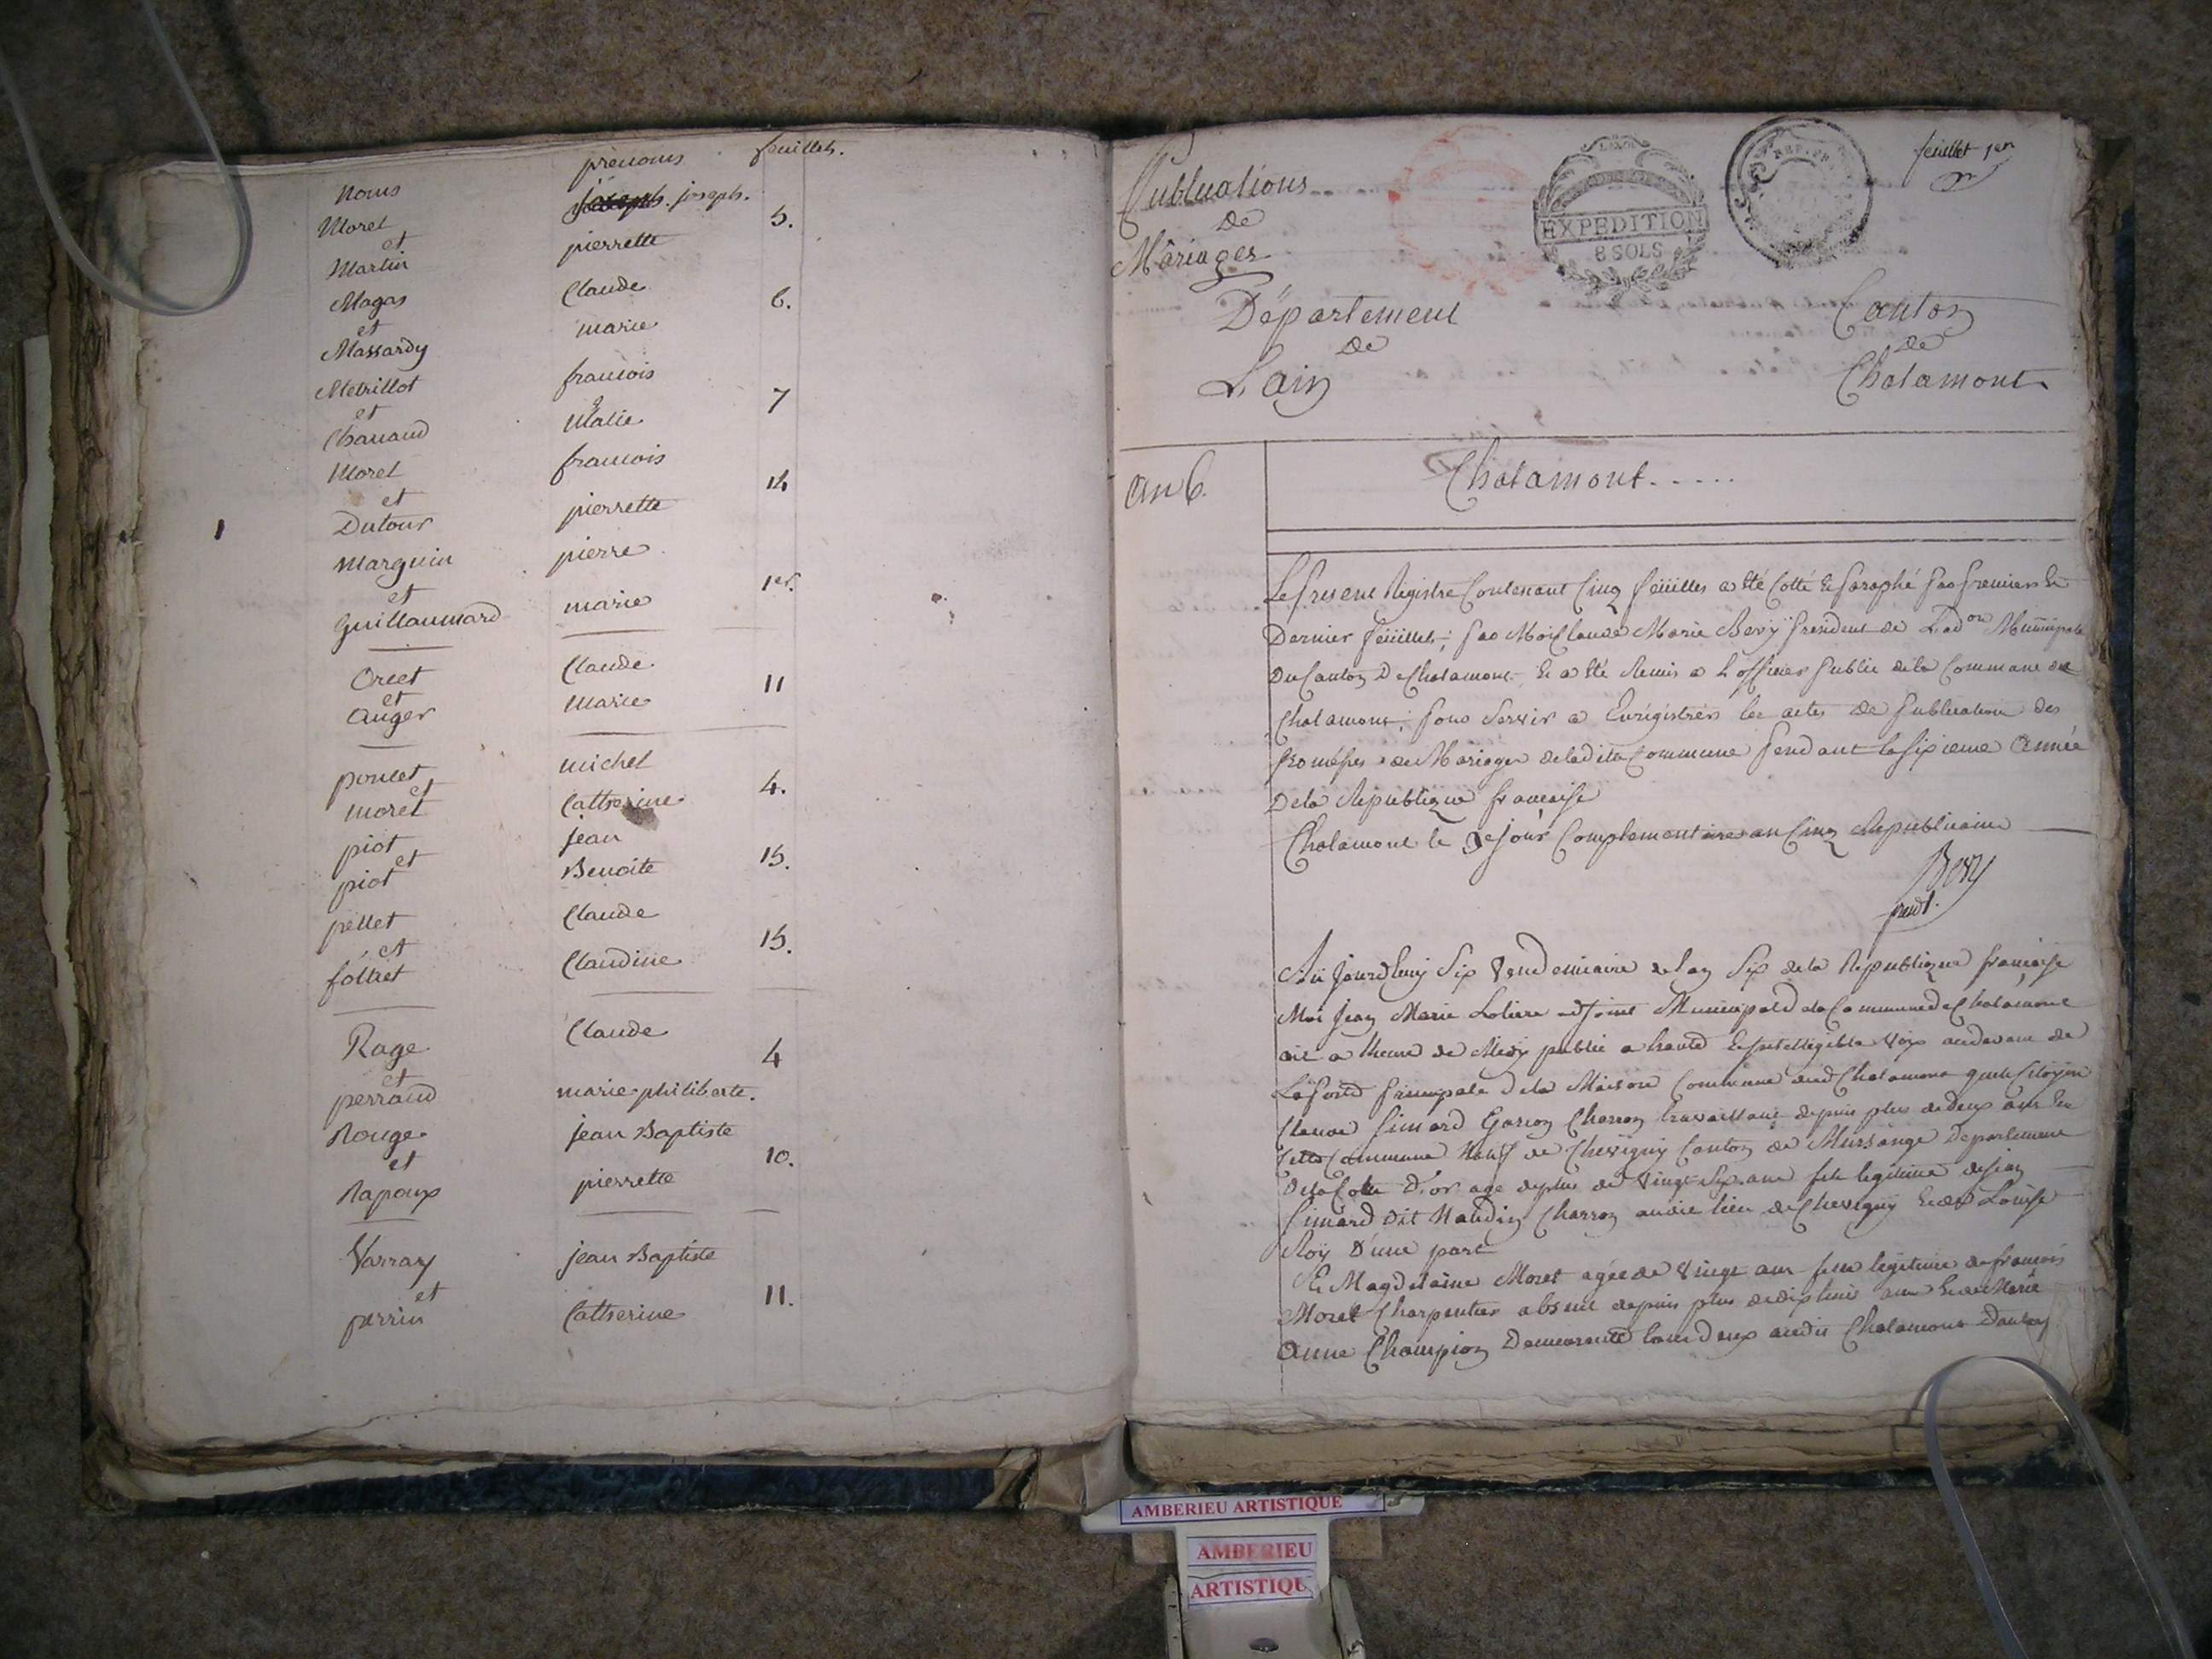 noms prenoms feuillets.
Morel joseph. 5.
et
Martin pierrette
Magas Claude 6.
et
Massardy marie
Metrillot francois 7
et
Chanaud Marie
Morel francois 14
et
Dutour pierrette
Marguin pierre 1er.
et
Guillaumard marie
Oriet Claude 11
et
auger Marie
poncet michel 4.
et
moret Catherine
piot jean 15.
et
piot Benoite
pellet Claude 15.
et
folliet Claudine
Rage Claude 4
et
perraud marie philiberte.
Rouge jean Baptiste 10.
et
Rapoux pierrette
Varray jean Baptiste 11.
et
perrin Catherine
1
feuillet 1er
Publications
de
Mariages
EXPEDITION
8 SOLS
REP. FR.
Département
de
Lain
Canton
de
Chalamont
an 6.
Chalamont.....
Le present Registre Contenant Cinq feüilles a Eté Cotté Et paraphé par premier Et
Dernier feüillet; par Moi Claude Marie Bevy president de L'adon Municipale
Du Canton De Chalamont Et a Eté Remis a L'officier public de la Commune de
Chalamont; pour Servir a Enrégistrer les actes de publication des
promesses de Mariages de ladite Commune pendant la sixieme année
De la Republique francaise
Chalamont le jour Complementaire an Cinq Republicain
Bevy
presdt.
Aujourdhuy Six Vendemiaire de l'an Six de la Republique francaise
Moi Jean Marie adjoint Municipal de la Commune de Chalamont
ai a lheure de Midy publié a haute Et Intelligible Voix audevant de
La porte principale de la Maison Commune dud Chalamont que le Citoyen
Claude Simard Garçon Charron travaillant depuis plus de deux ans En
Cette Commune Natif de Chevigny Canton de Departement
De la Cote D'or agé de plus de Vingt Six ans fils legitime de Jean
Simard dit Naudin Charron audit lieu de Chevigny Et de Louise
Roÿ D'une part
Et Magdelaine Moret agée de Vingt ans fille legitime de francois
Moret Charpentier absent depuis plus de dix huit ans Et de Marie
Anne Champion Demeurante tous deux audit Chalamont Dautre
AMBERIEU ARTISTIQUE
AMBERIEU
ARTISTIQU